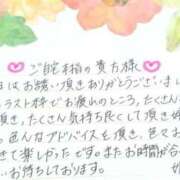 ご自宅様の貴方様
はお誘い頂きありがとうございま
ラスト枠でお疲れのところ、たくさん
頂き、たくさん気持ち良くして頂き
。色んなアドバイスを頂き、色々お
きて楽しかったです。またお時間が合
お待ちしております。